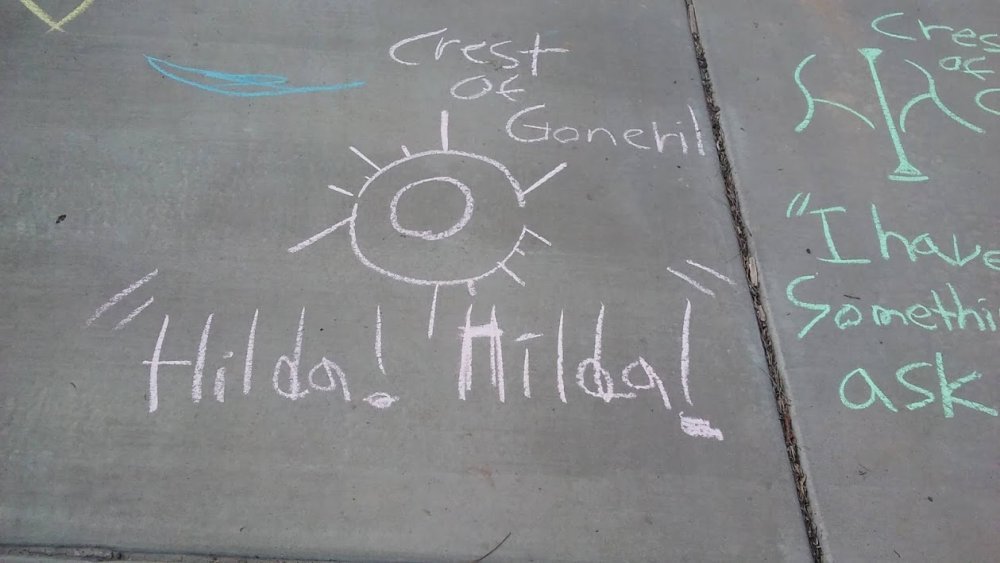 Crest
of
Goneril
"Hilda! Hilda!"
Cres
of
"I have
Somethi
ask